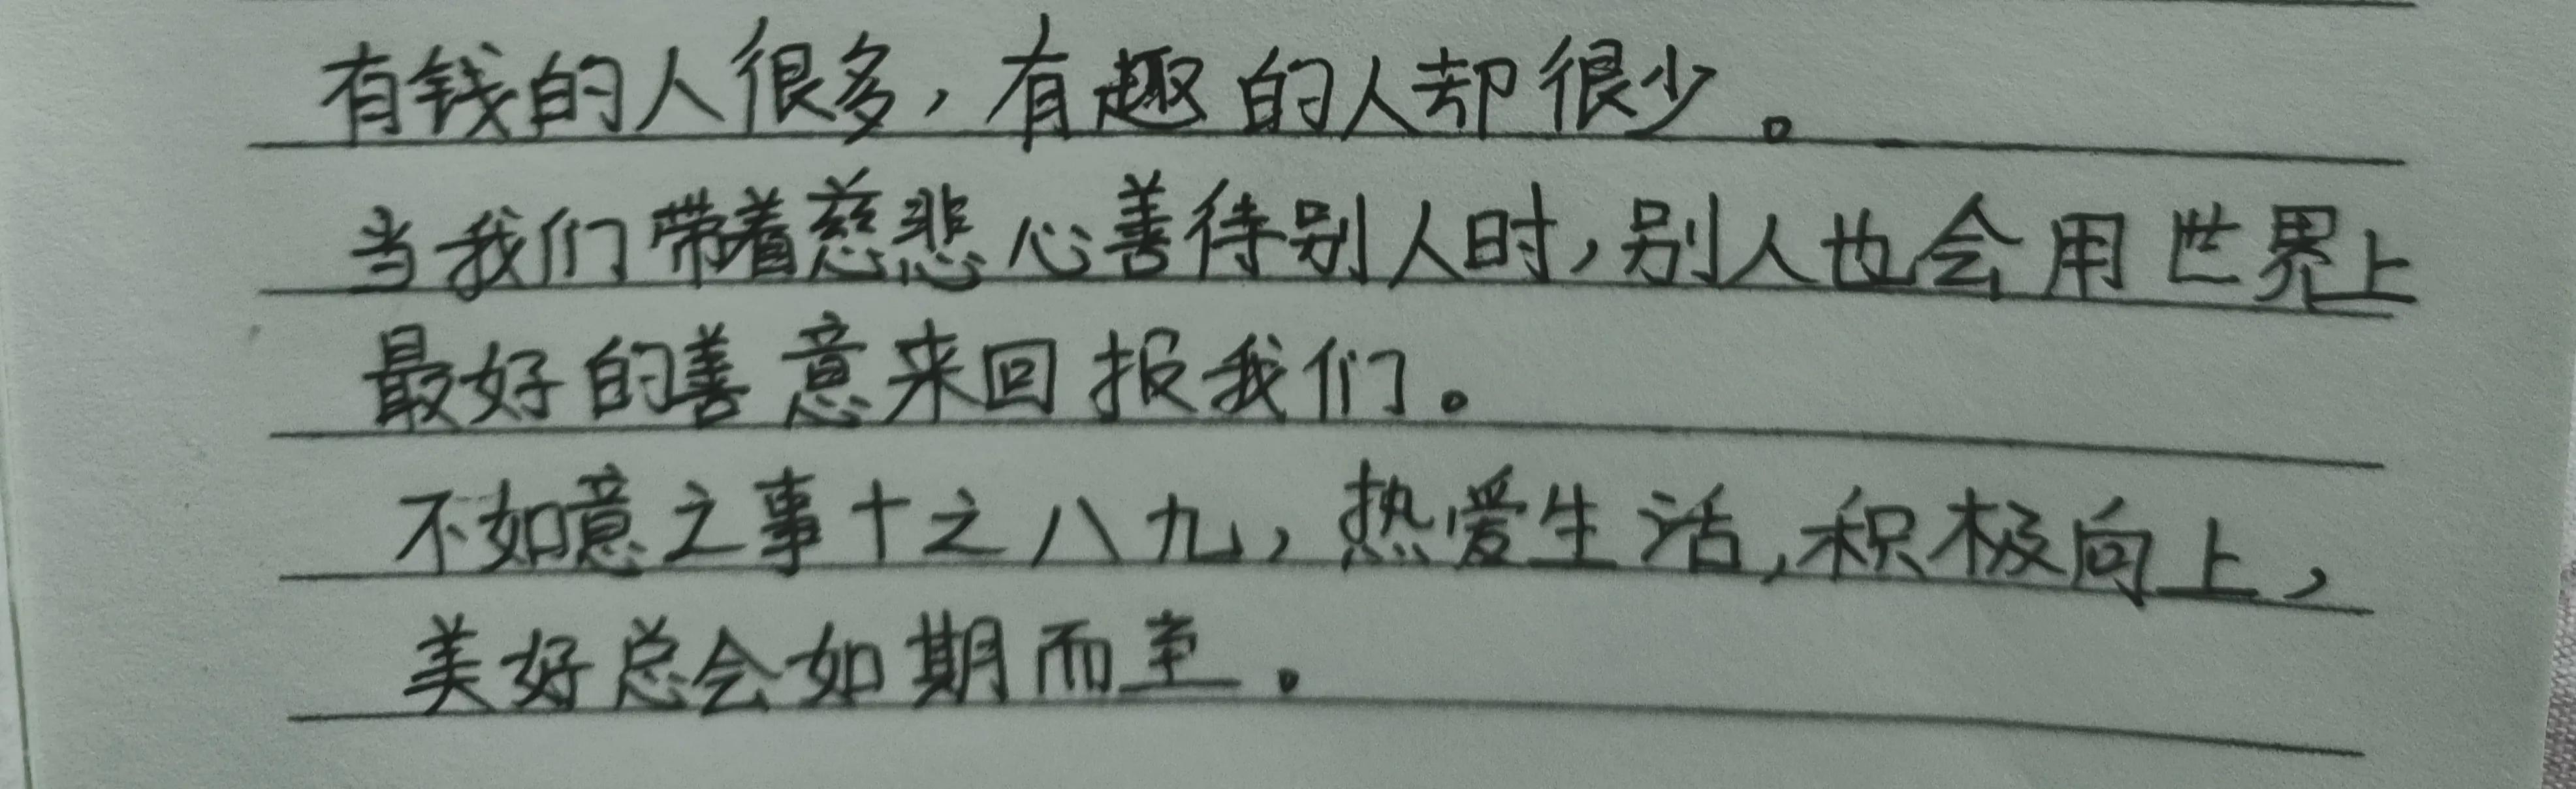 有钱的人很多，有趣的人却很少。
当我们带着慈悲心善待别人时，别人也会用世界上
最好的善意来回报我们。
不如意之事十之八九，热爱生活，积极向上，
美好总会如期而至。